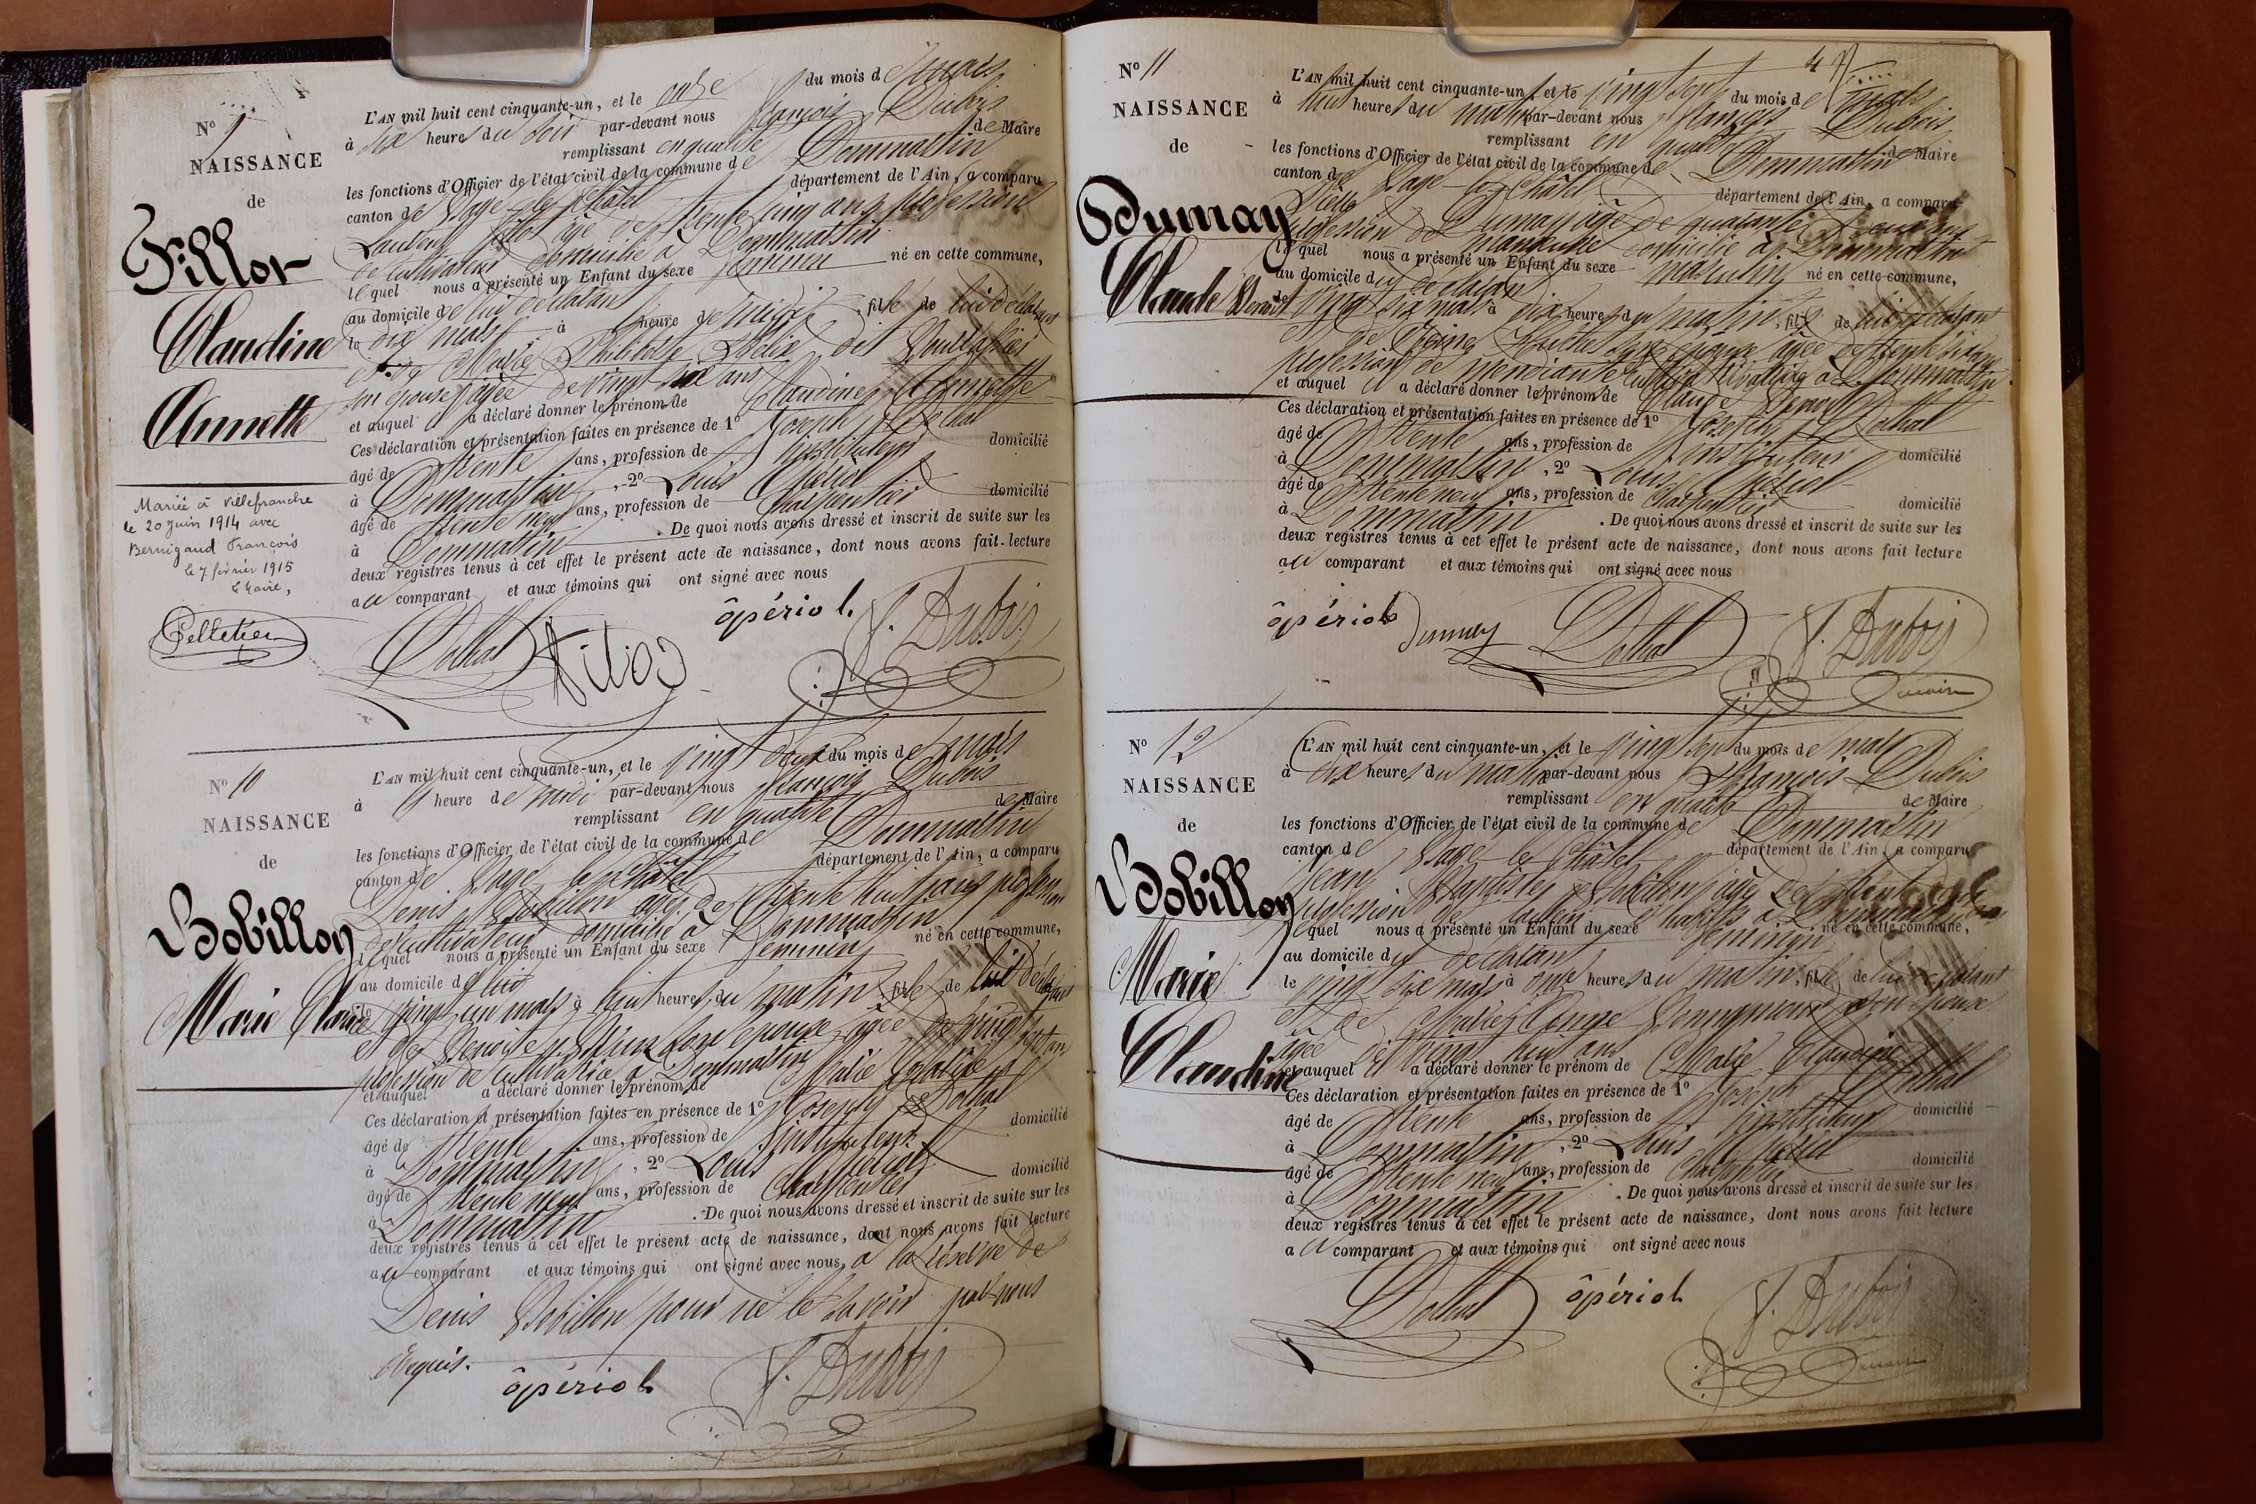 N° 9
NAISSANCE
de
Fillot
Claudine
Annette
Mariée à Villefranche
le 20 juin 1914 avec
Bernigaud François
le 7 février 1915
Le Maire,
Pelletier
L'AN mil huit cent cinquante-un, et le onze du mois de mars
à dix heures du soir par-devant nous François Dubois
remplissant en qualité de Maire
les fonctions d'Officier de l'état civil de la commune de Dommartin
canton de Bagé le Châtel département de l'Ain, a comparu
Laurent Fillot âgé de trente cinq ans profession
de cultivateur domicilié à Dommartin
lequel nous a présenté un Enfant du sexe féminin né en cette commune,
au domicile de lui déclarant
le dix mars à heure de midi, fille de lui déclarant
et de Marie Philiberte dit
son épouse âgée de vingt ans
et auquel a déclaré donner le prénom de Claudine Annette
Ces déclaration et présentation faites en présence de 1° Joseph Dothal
âgé de trente ans, profession de instituteur domicilié
à Dommartin, 2° Louis Périol
âgé de trente neuf ans, profession de charpentier domicilié
à Dommartin. De quoi nous avons dressé et inscrit de suite sur les
deux registres tenus à cet effet le présent acte de naissance, dont nous avons fait lecture
au comparant et aux témoins qui ont signé avec nous
ôpériol
F. Dubois
N° 10
NAISSANCE
de
Bobillon
Marie Claudine
L'AN mil huit cent cinquante-un, et le vingt deux du mois de mars
à heure de midi par-devant nous François Dubois
remplissant en qualité de Maire
les fonctions d'Officier de l'état civil de la commune de Dommartin
canton de Bagé le Châtel département de l'Ain, a comparu
Denis Bobillon âgé de trente huit ans profession
de cultivateur domicilié à Dommartin
lequel nous a présenté un Enfant du sexe féminin né en cette commune,
au domicile de lui
le vingt un mars à huit heures du matin, fille de lui déclarant
et de son épouse âgée de vingt sept ans
profession de cultivatrice à Dommartin
et auquel a déclaré donner le prénom de Marie
Ces déclaration et présentation faites en présence de 1° Joseph Dothal
âgé de trente ans, profession de instituteur domicilié
à Dommartin, 2° Louis Périol
âgé de trente neuf ans, profession de charpentier domicilié
à Dommartin. De quoi nous avons dressé et inscrit de suite sur les
deux registres tenus à cet effet le présent acte de naissance, dont nous avons fait lecture
au comparant et aux témoins qui ont signé avec nous, à la réserve de
Denis Bobillon pour ne le savoir par nous
requis.
ôpériol
F. Dubois
N° 11
NAISSANCE
de
Dumay
Claude Denis
L'AN mil huit cent cinquante-un, et le vingt sept du mois de mars
à huit heures du matin par-devant nous François Dubois
remplissant en qualité de Maire
les fonctions d'Officier de l'état civil de la commune de Dommartin
canton de Bagé le Châtel département de l'Ain, a comparu
Dumay âgé de quarante ans
profession de domicilié à Dommartin
lequel nous a présenté un Enfant du sexe masculin né en cette commune,
au domicile du déclarant
le vingt six mars à dix heures du matin, fils de lui déclarant
et de son épouse âgée de trente
profession de à Dommartin
et auquel a déclaré donner le prénom de Claude Denis
Ces déclaration et présentation faites en présence de 1° Joseph Dothal
âgé de trente ans, profession de instituteur domicilié
à Dommartin, 2° Louis Périol
âgé de trente neuf ans, profession de charpentier domicilié
à Dommartin. De quoi nous avons dressé et inscrit de suite sur les
deux registres tenus à cet effet le présent acte de naissance, dont nous avons fait lecture
au comparant et aux témoins qui ont signé avec nous
ôpériol Dumay Dothal F. Dubois
maire
N° 12
NAISSANCE
de
Bobillon
Marie
Claudine
L'AN mil huit cent cinquante-un, et le vingt sept du mois de mars
à dix heures du matin par-devant nous François Dubois
remplissant en qualité de Maire
les fonctions d'Officier de l'état civil de la commune de Dommartin
canton de Bagé le Châtel département de l'Ain, a comparu
Jean Baptiste Bobillon âgé de trente
profession de à Dommartin
lequel nous a présenté un Enfant du sexe féminin né en cette commune,
au domicile du déclarant
le vingt six mars à onze heures du matin, fille de lui déclarant
et de Marie son épouse
âgée de vingt huit ans
et auquel a déclaré donner le prénom de Marie Claudine
Ces déclaration et présentation faites en présence de 1° Joseph Dothal
âgé de trente ans, profession de instituteur domicilié
à Dommartin, 2° Louis Périol
âgé de trente neuf ans, profession de charpentier domicilié
à Dommartin. De quoi nous avons dressé et inscrit de suite sur les
deux registres tenus à cet effet le présent acte de naissance, dont nous avons fait lecture
au comparant et aux témoins qui ont signé avec nous
Dothal ôpériol F. Dubois
maire